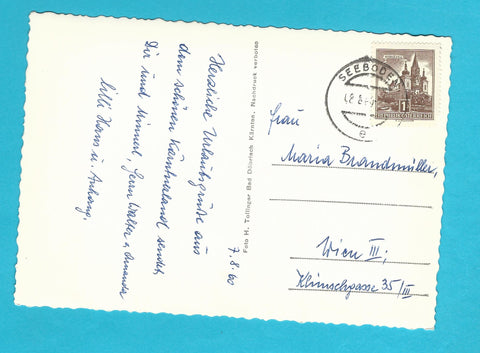 7.8.60
Herzliche Urlaubsgrüße aus
dem schönen Kärntnerland sendet
Dir und Minnerl, Herrn Walter u. Amanda
Lilli Hans u. Anhang.
Foto H. Tollinger Bad Döllach Kärnten. Nachdruck verboten
SEEBODEN
e
1
REPUBLIK ÖSTERREICH
Frau
Maria Brandmüller,
Wien III;
Klimschgasse 35/III